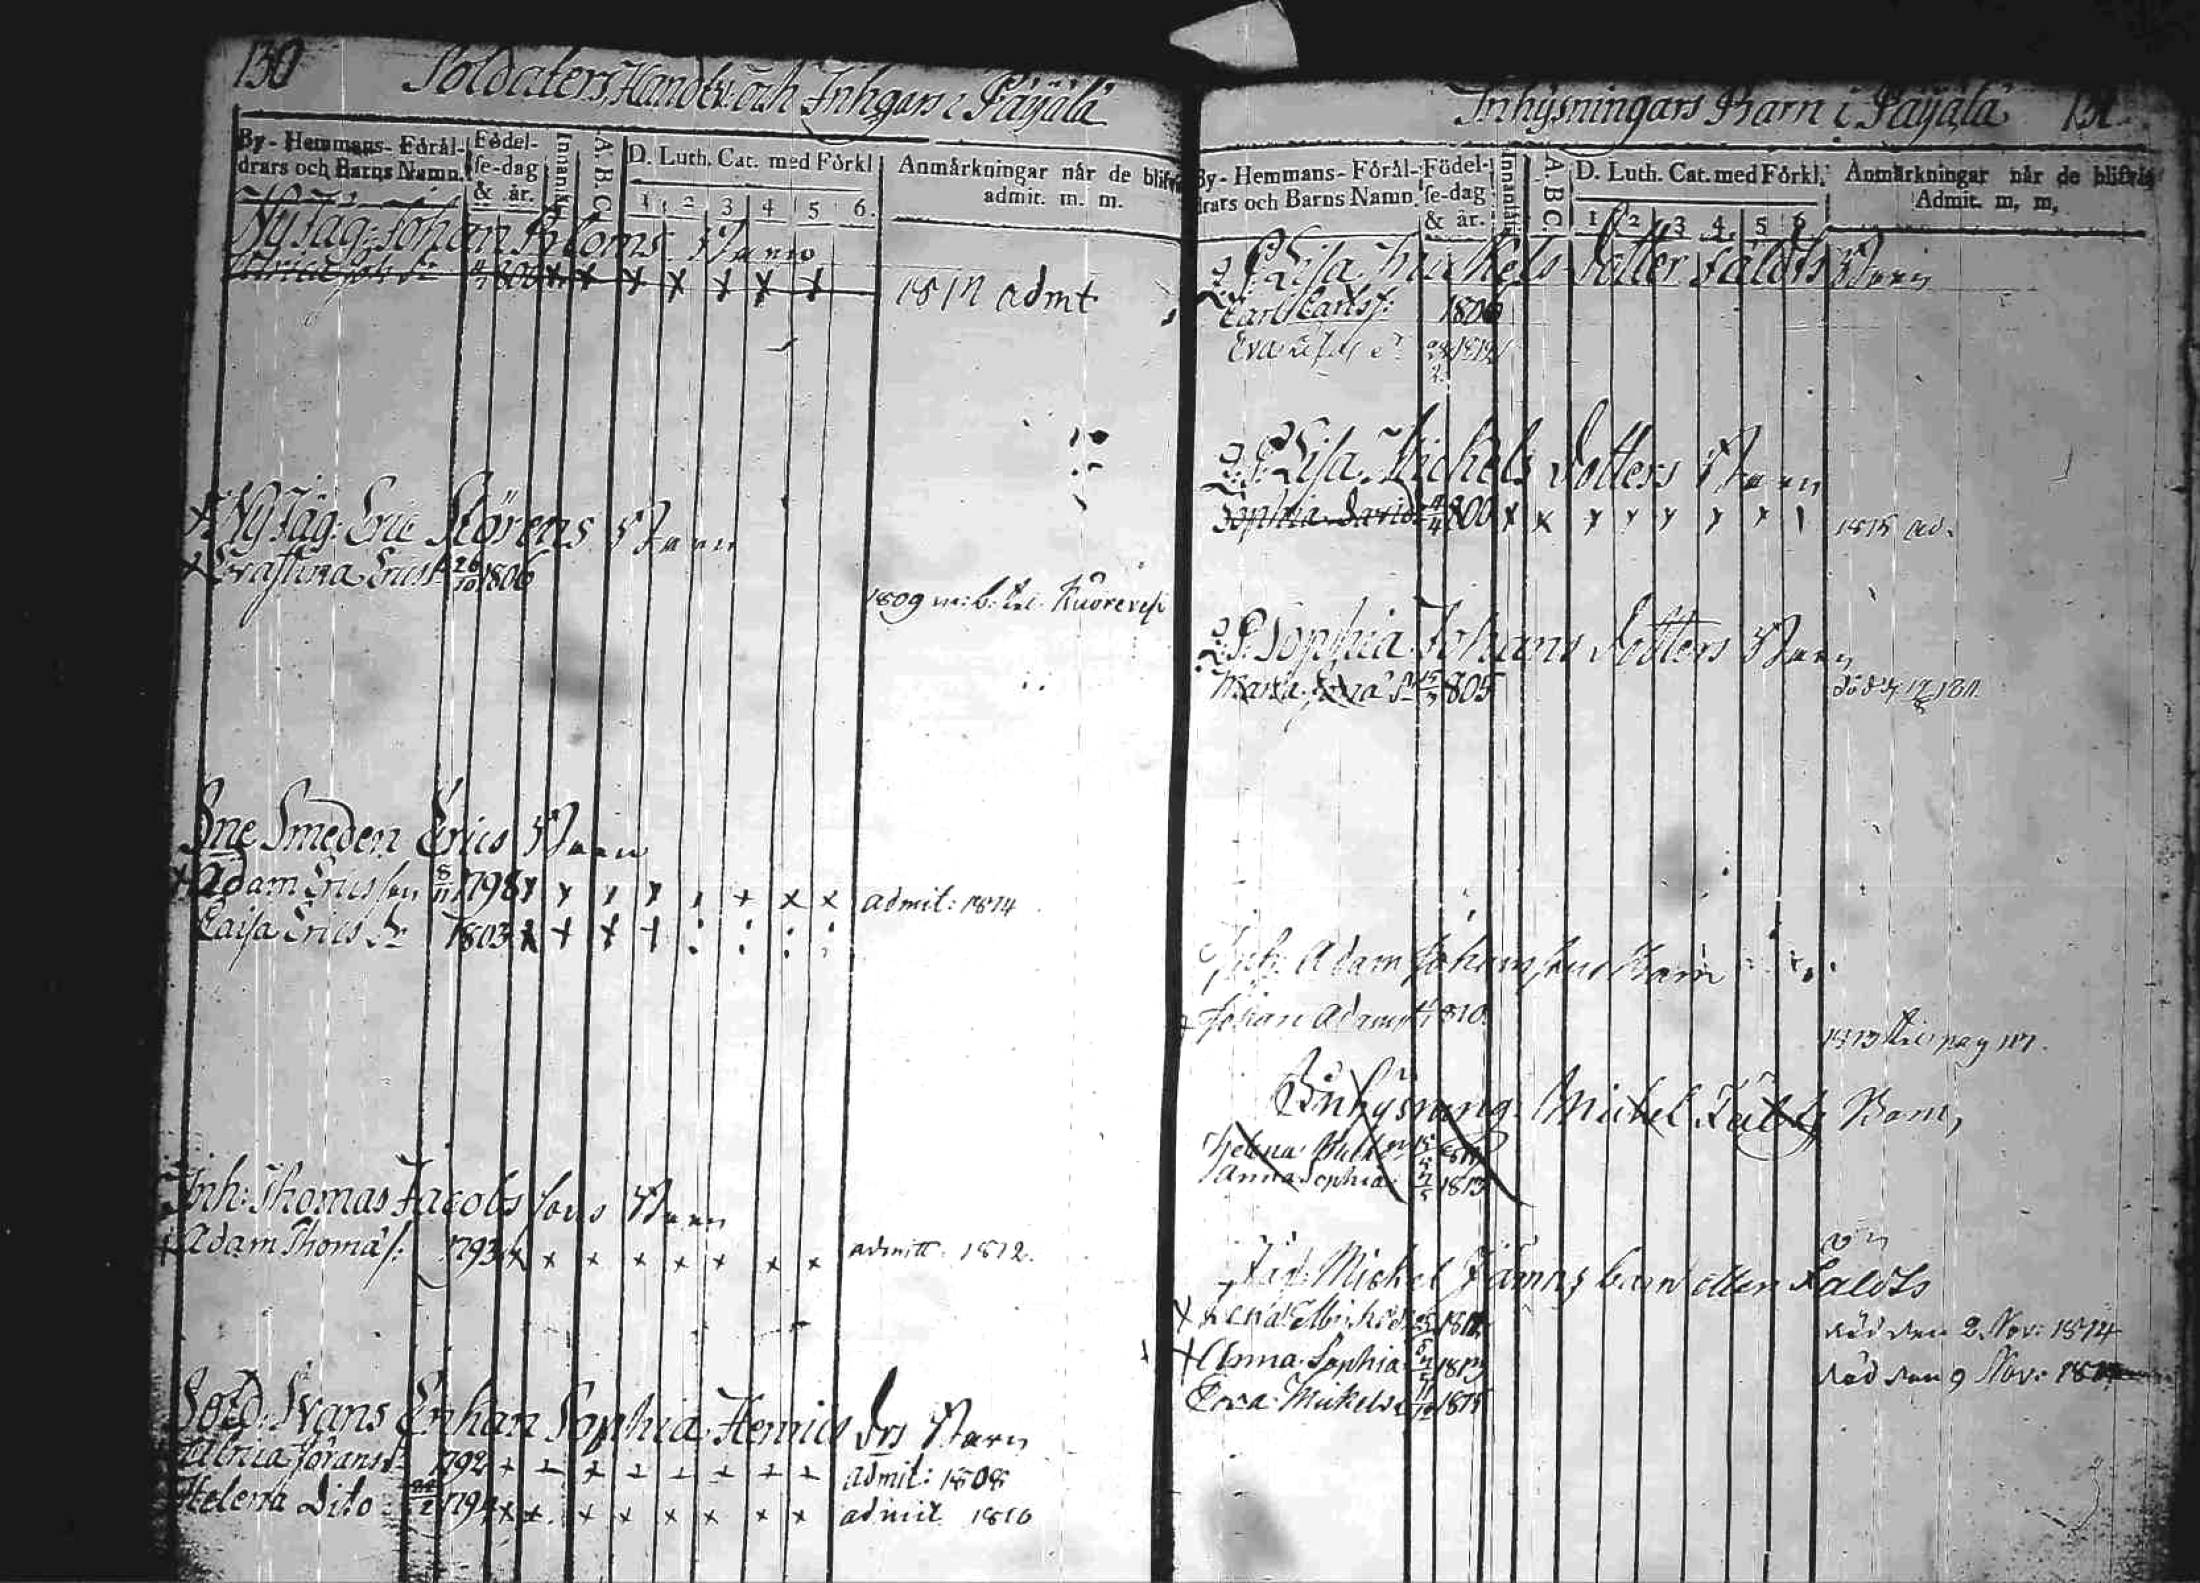 130 Soldaters, Handtv: och Inhÿsars i Päÿälä
By- Hemmans- Föräl-
drars och Barns Namn.
Födel-
se-dag
& år.
Innanläs.
A. B. C.
D. Luth. Cat. med Förkl.
1 2 3 4 5 6.
Anmärkningar när de blifvit
admit. m. m.
Nÿ Jäg: Johan Bloms Barn
1800 x x x x x x x 1817 admt
+ Nÿ Jäg: Eric Störens Barn
x Cristina Ericsd 26/10 1806
1809 m: b: till Kuorevesi
Sne Smeden Erics Barn
+ Adam Ericsson 8/11 1798 x x x x x + x x admit: 1814
Caisa Erics Dr 1803 x + x + : : : :
Inh: Thomas Jacobs sons Barn
+ Adam Thomæ s: 1793 x x x x x x x x admitt. 1812.
Sold: Svans Enkan Sophia Henrics Drs Barn
Ulrica Jörans d: 1792 + + + + + + + + admit: 1808
Helena Dito 22/2 1794 x x x x x x x x admit 1810
Inhÿsningars Barn i Päÿälä 131.
By- Hemmans- Föräl-
drars och Barns Namn
Födel-
se-dag
& år.
Innanläs.
A. B. C.
D. Luth. Cat. med Förkl.
1 2 3 4 5 6
Anmärkningar när de blifvit
Admit. m. m.
Q. P. Lisa Michels dotter Faldts Barn
Carl Carls s: 1806
Eva 1812
Q. P. Lisa Michels dotters Barn
Sophia Davids 4/4 1800 x x x x x x x 1815 ad.
Q. P. Sophia Johans dotters Barn
Maria Jona D 15/3 1805 död 17/8 1811.
Inh: Adam Johanssons Barn
+ Johan Adams 1810.
1813 till pag 117.
Inhÿsning Michel Faldts Barn,
Helena Mich
Anna Sophia 2/5 1813
Jäg: Michel Jämns barn eller Faldts
+ Lena Michels d 1811 död den 2 Nov: 1814
+ Anna Sophia 2/5 1813 död den 9 Nov:
Eva Mickels d 11/12 1815